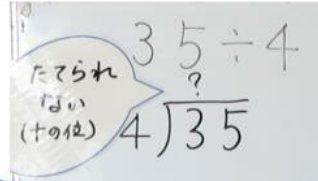 35÷4
たてられ
ない
(十の位)
?
4)35